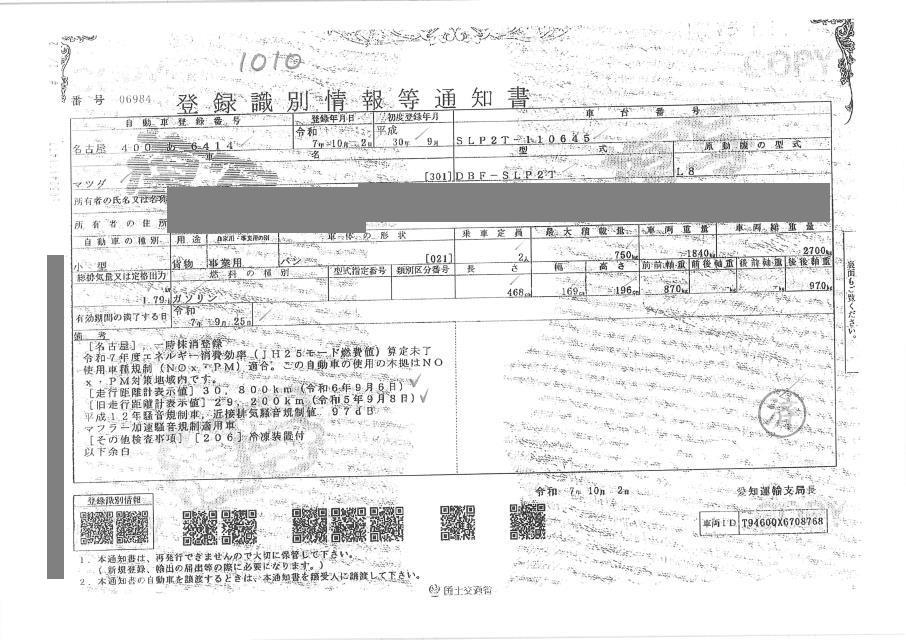 1010
番号 06984 登録識別情報等通知書
自動車登録番号 登録年月日 初度登録年月 車台番号
名古屋 400 あ 6414 令和 7年10月 2日 平成 30年 9月 SLP2T-110645
車名 型式 原動機の型式
マツダ [301] DBF-SLP2T L8
所有者の氏名又は名称
所有者の住所
自動車の種別 用途 自家用・事業用の別 車体の形状 乗車定員 最大積載量 車両重量 車両総重量
小型 貨物 事業用 バン [021] 2人 750kg 1840kg 2700kg
総排気量又は定格出力 燃料の種別 型式指定番号 類別区分番号 長さ 幅 高さ 前前軸重 前後軸重 後前軸重 後後軸重
1.79 ガソリン 468cm 169cm 196cm 870kg -kg -kg 970kg
有効期間の満了する日 令和 7年 9月 25日
備考
[名古屋],一時抹消登録
令和7年度エネルギー消費効率(JH25モード燃費値)算定未了
使用車種規制(NOx・PM)適合。この自動車の使用の本拠はNO
x・PM対策地域内です。
[走行距離計表示値]30,800km(令和6年9月6日)
[旧走行距離計表示値]29,200km(令和5年9月8日)
平成12年騒音規制車,近接排気騒音規制値 97dB
マフラー加速騒音規制適用車
[その他検査事項][206]冷凍装置付
以下余白
済
裏面もご覧ください。
令和 7年 10月 2日 愛知運輸支局長
登録識別情報
車両ID T9460QX6708768
1.本通知書は、再発行できませんので大切に保管して下さい。
(新規登録、輸出の届出等の際に必要になります。)
2.本通知書の自動車を譲渡するときは、本通知書を譲受人に譲渡して下さい。
国土交通省